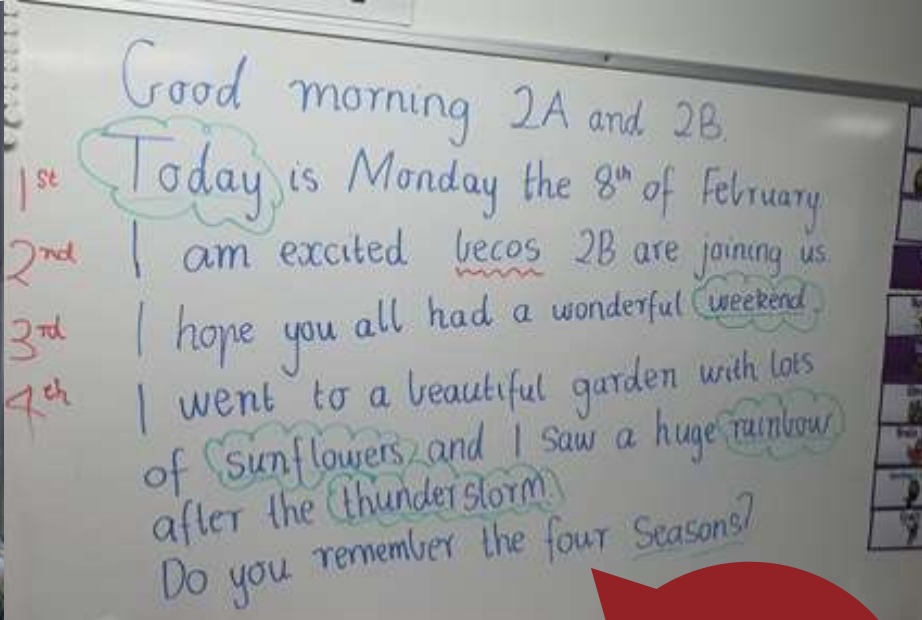 Good morning 2A and 2B.
1st Today is Monday the 8th of February.
2nd I am excited becos 2B are joining us.
3rd I hope you all had a wonderful weekend.
4th I went to a beautiful garden with lots
of sunflowers and I saw a huge rainbow
after the thunderstorm.
Do you remember the four Seasons?